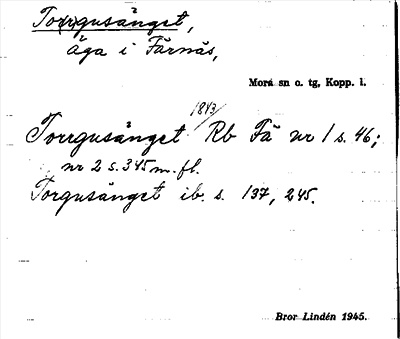 Torrgusänget,
äga i Färnäs,
Mora sn o. tg, Kopp. l.
1813/
Torrgusänget Rb Fä nr 1 s. 46;
nr 2 s. 345 m. fl.
Torgusänget ib. s. 137, 245.
Bror Lindén 1945.